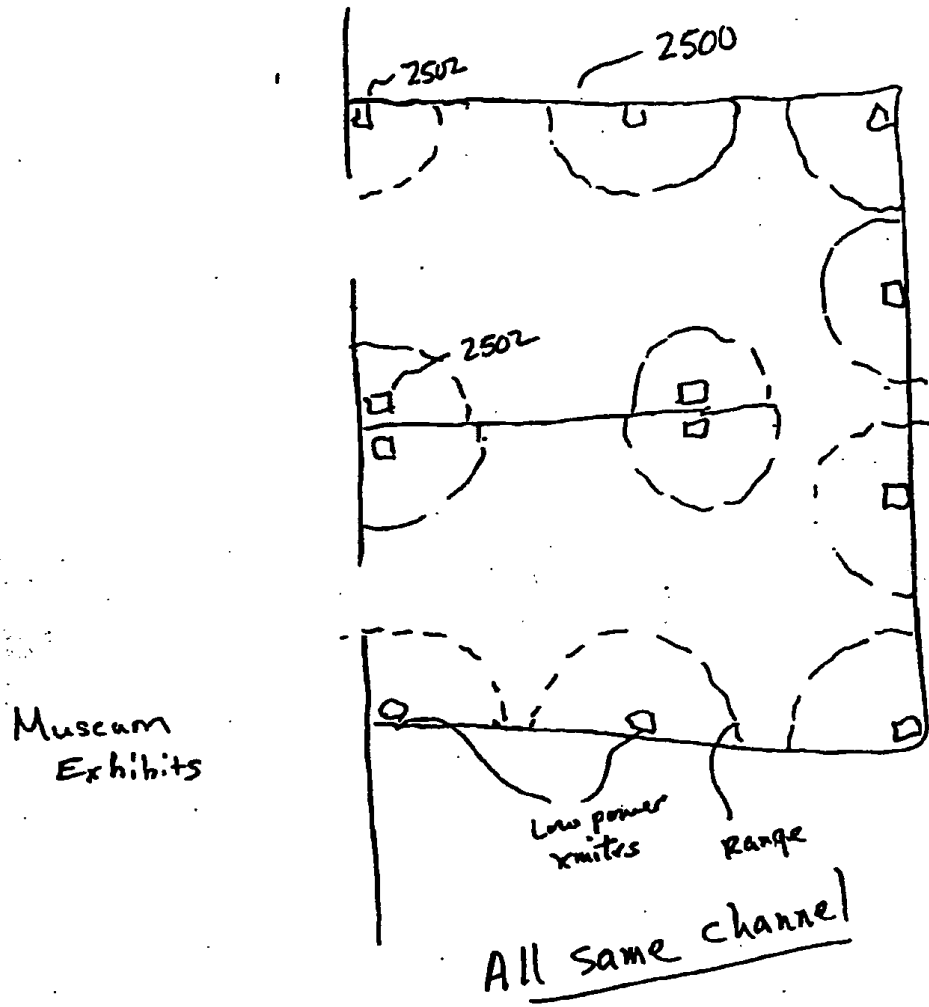 2500
2502
2502
Museam
Exhibits
Low power
xmitrs
Range
All same channel